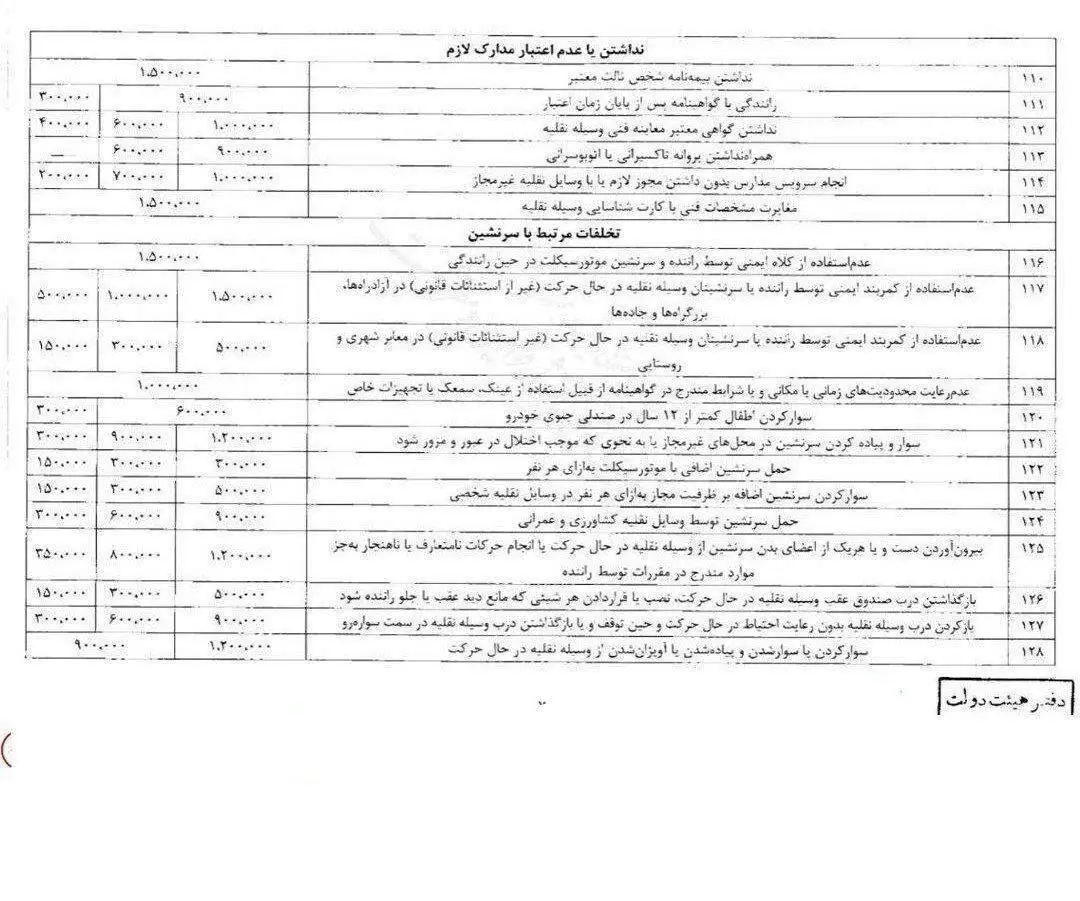 نداشتن یا عدم اعتبار مدارک لازم
۱۱۰ نداشتن بیمه‌نامه شخص ثالث معتبر ۱.۵۰۰.۰۰۰
۱۱۱ رانندگی با گواهینامه پس از پایان زمان اعتبار ۹۰۰.۰۰۰ ۳۰۰.۰۰۰
۱۱۲ نداشتن گواهی معتبر معاینه فنی وسیله نقلیه ۱.۰۰۰.۰۰۰ ۶۰۰.۰۰۰ ۴۰۰.۰۰۰
۱۱۳ همراه‌نداشتن پروانه تاکسیرانی یا اتوبوسرانی ۹۰۰.۰۰۰ ۶۰۰.۰۰۰ —
۱۱۴ انجام سرویس مدارس بدون داشتن مجوز لازم یا با وسایل نقلیه غیرمجاز ۱.۰۰۰.۰۰۰ ۷۰۰.۰۰۰ ۲۰۰.۰۰۰
۱۱۵ مغایرت مشخصات فنی با کارت شناسایی وسیله نقلیه ۱.۵۰۰.۰۰۰
تخلفات مرتبط با سرنشین
۱۱۶ عدم‌استفاده از کلاه ایمنی توسط راننده و سرنشین موتورسیکلت در حین رانندگی ۱.۵۰۰.۰۰۰
۱۱۷ عدم‌استفاده از کمربند ایمنی توسط راننده یا سرنشینان وسیله نقلیه در حال حرکت (غیر از استثنائات قانونی) در آزادراه‌ها، ۱.۵۰۰.۰۰۰ ۱.۰۰۰.۰۰۰ ۵۰۰.۰۰۰
بزرگراه‌ها و جاده‌ها
۱۱۸ عدم‌استفاده از کمربند ایمنی توسط راننده یا سرنشینان وسیله نقلیه در حال حرکت (غیر استثنائات قانونی) در معابر شهری و ۵۰۰.۰۰۰ ۳۰۰.۰۰۰ ۱۵۰.۰۰۰
روستایی
۱۱۹ عدم‌رعایت محدودیت‌های زمانی یا مکانی و یا شرایط مندرج در گواهینامه از قبیل استفاده از عینک، سمعک یا تجهیزات خاص ۱.۰۰۰.۰۰۰
۱۲۰ سوارکردن اطفال کمتر از ۱۲ سال در صندلی جلوی خودرو ۶۰۰.۰۰۰ ۳۰۰.۰۰۰
۱۲۱ سوار و پیاده کردن سرنشین در محل‌های غیرمجاز یا به نحوی که موجب اختلال در عبور و مرور شود ۱.۲۰۰.۰۰۰ ۹۰۰.۰۰۰ ۳۰۰.۰۰۰
۱۲۲ حمل سرنشین اضافی با موتورسیکلت به‌ازای هر نفر ۳۰۰.۰۰۰ ۳۰۰.۰۰۰ ۱۵۰.۰۰۰
۱۲۳ سوارکردن سرنشین اضافه بر ظرفیت مجاز به‌ازای هر نفر در وسایل نقلیه شخصی ۵۰۰.۰۰۰ ۳۰۰.۰۰۰ ۱۵۰.۰۰۰
۱۲۴ حمل سرنشین توسط وسایل نقلیه کشاورزی و عمرانی ۹۰۰.۰۰۰ ۶۰۰.۰۰۰ ۳۰۰.۰۰۰
۱۲۵ بیرون‌آوردن دست و یا هریک از اعضای بدن سرنشین از وسیله نقلیه در حال حرکت یا انجام حرکات نامتعارف یا ناهنجار به‌جز ۱.۲۰۰.۰۰۰ ۸۰۰.۰۰۰ ۳۵۰.۰۰۰
موارد مندرج در مقررات توسط راننده
۱۲۶ بازگذاشتن درب صندوق عقب وسیله نقلیه در حال حرکت، نصب یا قراردادن هر شیئی که مانع دید عقب یا جلو راننده شود ۵۰۰.۰۰۰ ۳۰۰.۰۰۰ ۱۵۰.۰۰۰
۱۲۷ بازکردن درب وسیله نقلیه بدون رعایت احتیاط در حال حرکت و حین توقف و یا بازگذاشتن درب وسیله نقلیه در سمت سواره‌رو ۹۰۰.۰۰۰ ۶۰۰.۰۰۰ ۳۰۰.۰۰۰
۱۲۸ سوارکردن یا سوارشدن و پیاده‌شدن یا آویزان‌شدن از وسیله نقلیه در حال حرکت ۱.۲۰۰.۰۰۰ ۹۰۰.۰۰۰
دفتر هیئت دولت